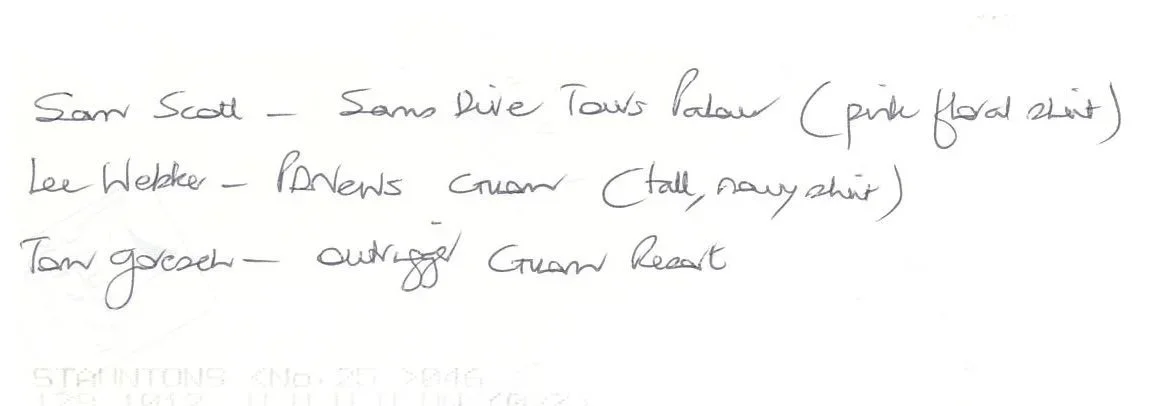 Sam Scott - Sams Dive Tours Palau (pink floral shirt)
Lee Webber - PDNews Guam (tall, navy shirt)
Tom - Outrigger Guam Resort
STAUNTONS <No. 25 >046